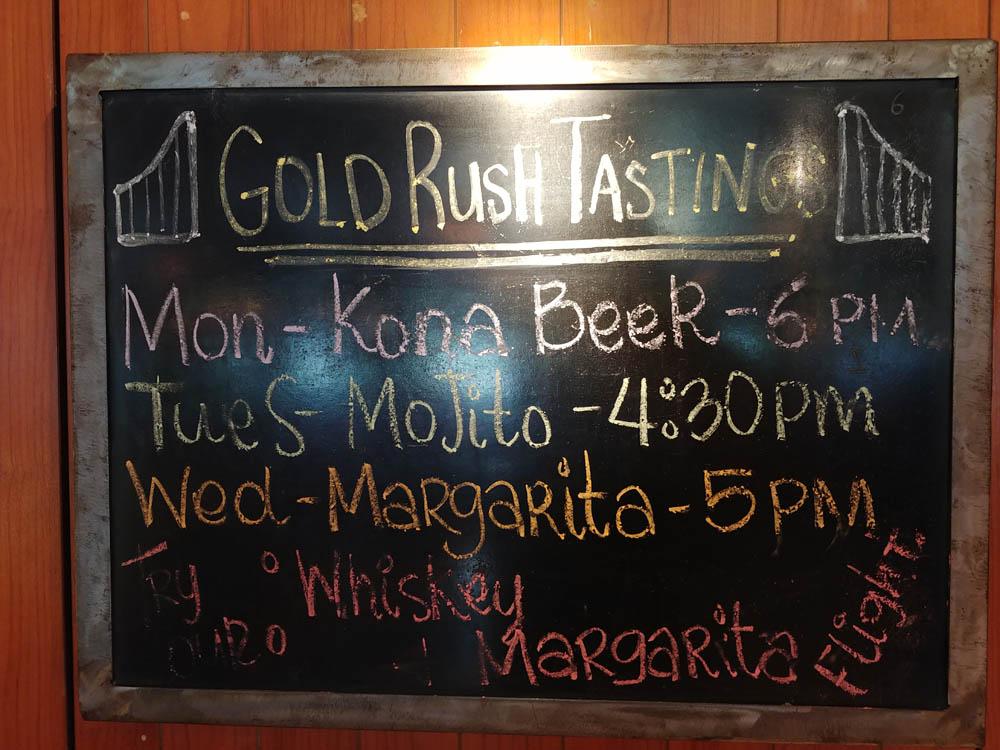 GOLD RUSH TASTINGS
Mon - Kona BeeR - 6 PM
TueS - MoJito - 4:30 PM
Wed - MargaRita - 5 PM
TRy Whiskey
MaRgaRita Flight